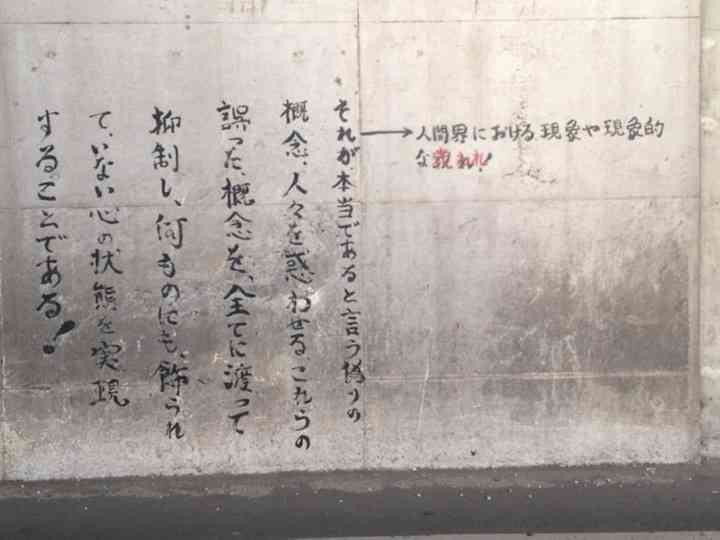 それが本当であると言う偽りの
概念、人々を惑わせる、これらの
誤った、概念を、全てに渡って
抑制し、何ものにも、飾られ
て、いない心の状態を実現
することである!
人間界における現象や現象的
な現れ!